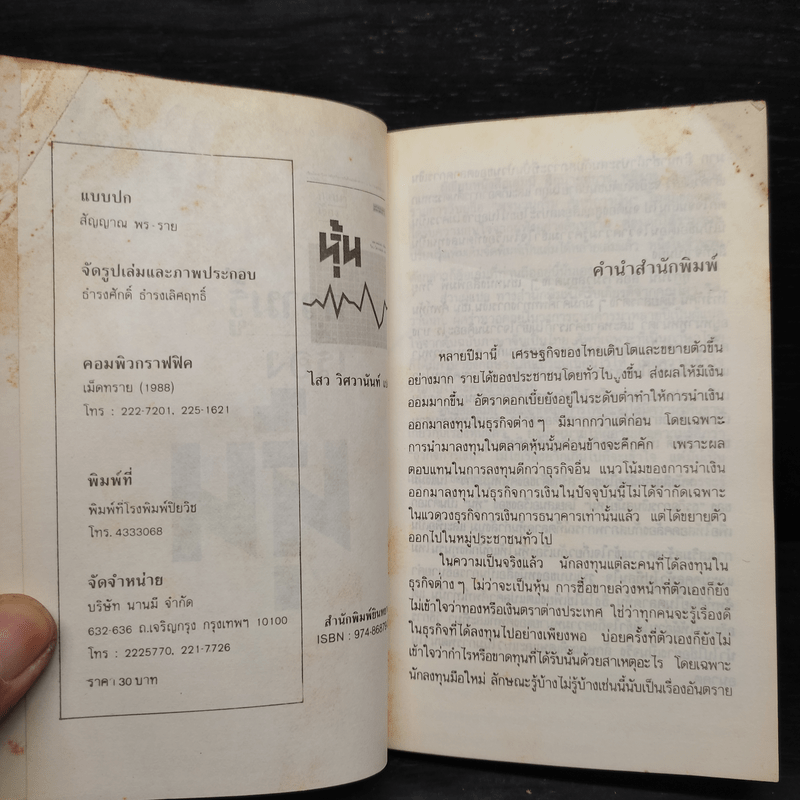 แบบปก
สัญญาณ พร-ราย
จัดรูปเล่มและภาพประกอบ
ธำรงศักดิ์ ธำรงเลิศฤทธิ์
คอมพิวกราฟฟิค
เม็ดทราย (1988)
โทร : 222-7201, 225-1621
พิมพ์ที่
พิมพ์ที่โรงพิมพ์ปิยวิช
โทร. 4333068
จัดจำหน่าย
บริษัท นานมี จำกัด
632-636 ถ.เจริญกรุง กรุงเทพฯ 10100
โทร : 2225770, 221-7726
ราคา 30 บาท
หุ้น
ไสว วิศวานันท์
สำนักพิมพ์
ISBN : 974-8687
คำนำสำนักพิมพ์
หลายปีมานี้ เศรษฐกิจของไทยเติบโตและขยายตัวขึ้น
อย่างมาก รายได้ของประชาชนโดยทั่วไปสูงขึ้น ส่งผลให้มีเงิน
ออมมากขึ้น อัตราดอกเบี้ยยังอยู่ในระดับต่ำทำให้การนำเงิน
ออกมาลงทุนในธุรกิจต่าง ๆ มีมากกว่าแต่ก่อน โดยเฉพาะ
การนำมาลงทุนในตลาดหุ้นนั้นค่อนข้างจะคึกคัก เพราะผล
ตอบแทนในการลงทุนดีกว่าธุรกิจอื่น แนวโน้มของการนำเงิน
ออกมาลงทุนในธุรกิจการเงินในปัจจุบันนี้ไม่ได้จำกัดเฉพาะ
ในแวดวงธุรกิจการเงินการธนาคารเท่านั้นแล้ว แต่ได้ขยายตัว
ออกไปในหมู่ประชาชนทั่วไป
ในความเป็นจริงแล้ว นักลงทุนแต่ละคนที่ได้ลงทุนใน
ธุรกิจต่าง ๆ ไม่ว่าจะเป็นหุ้น การซื้อขายล่วงหน้าที่ตัวเองก็ยัง
ไม่เข้าใจว่าทองหรือเงินตราต่างประเทศ ใช่ว่าทุกคนจะรู้เรื่องดี
ในธุรกิจที่ได้ลงทุนไปอย่างเพียงพอ บ่อยครั้งที่ตัวเองก็ยังไม่
เข้าใจว่ากำไรหรือขาดทุนที่ได้รับนั้นด้วยสาเหตุอะไร โดยเฉพาะ
นักลงทุนมือใหม่ ลักษณะรู้บ้างไม่รู้บ้างเช่นนี้นับเป็นเรื่องอันตราย